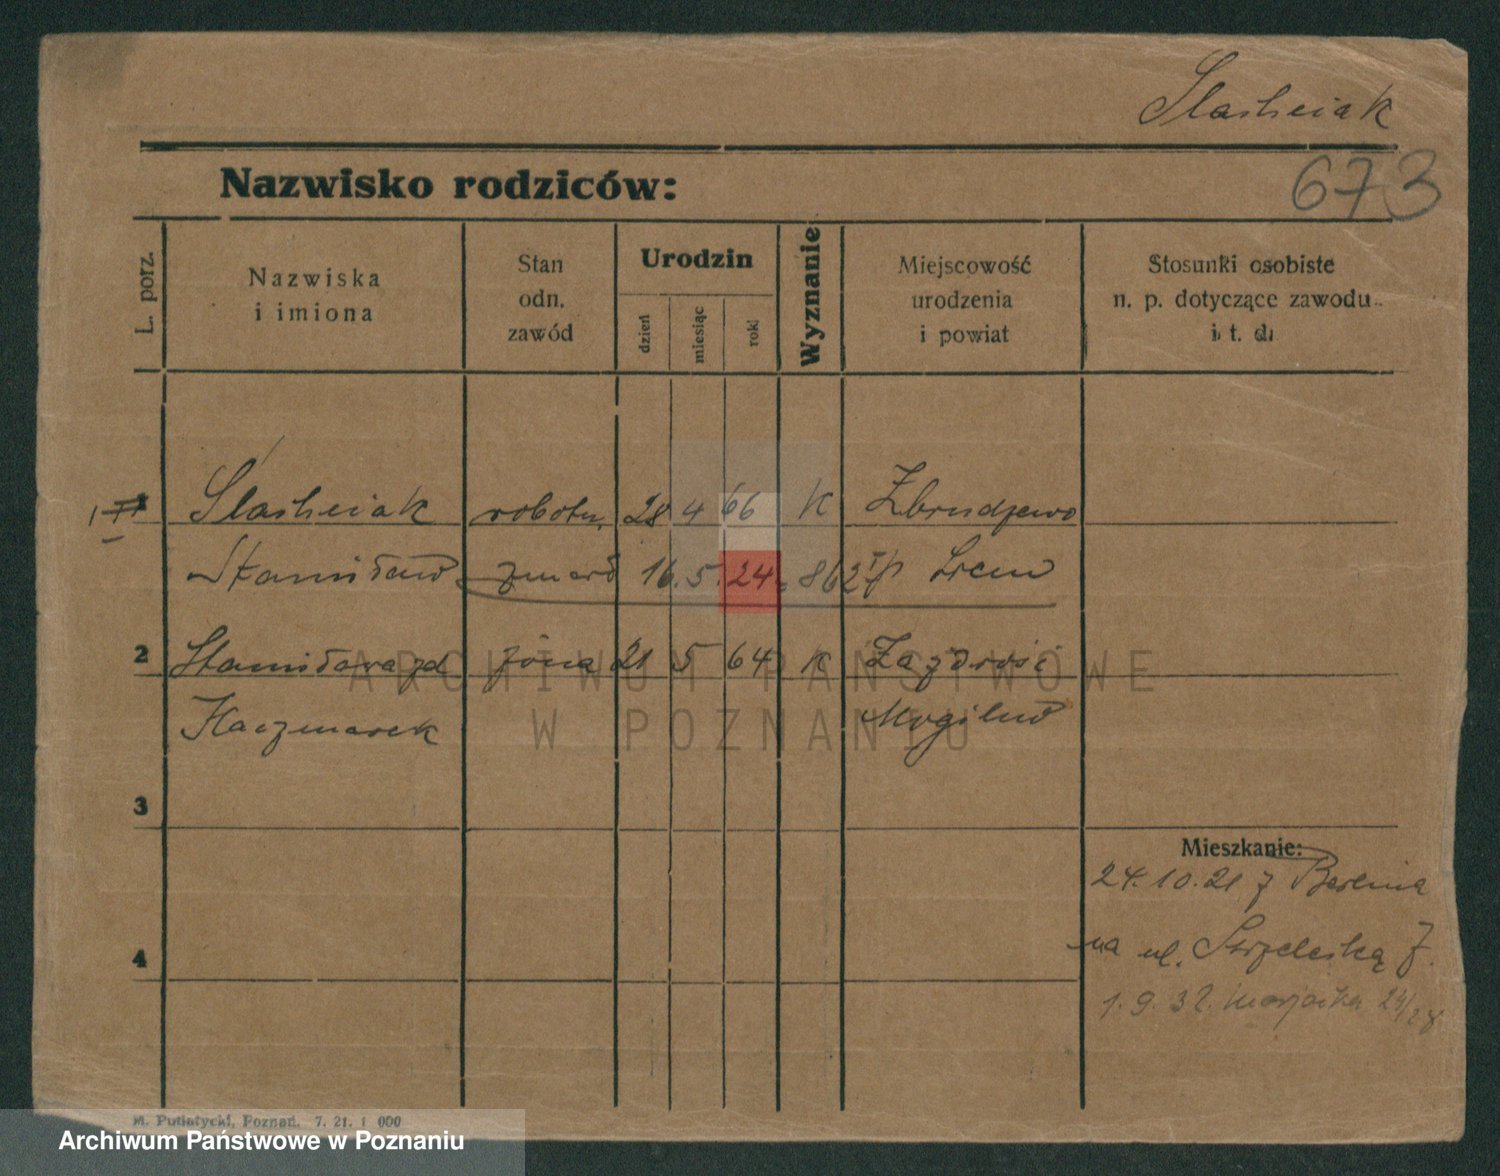 673
Nazwisko rodziców:
L. porz.
Nazwiska
i imiona
Stan
odn.
zawód
Urodzin
dzień
miesiąc
rok
Wyznanie
Miejscowość
urodzenia
i powiat
Stosunki osobiste
n. p. dotyczące zawodu
i t. d.
1 robotn. 28 4 66 K Zbrudzewo
Stanisław zmarł 16. 5. 24. 862 Śrem
2 Stanisława zd żona 21 5 64 K Zazdrość
Kaczmarek Mogilno
3
4
Mieszkanie:
24.10.21 z Berlina
na ul. Strzelecką 7.
1.9.32.
M. Putiatycki, Poznań. 7. 21. 1 000
ARCHIWUM PAŃSTWOWE
W POZNANIU
Archiwum Państwowe w Poznaniu